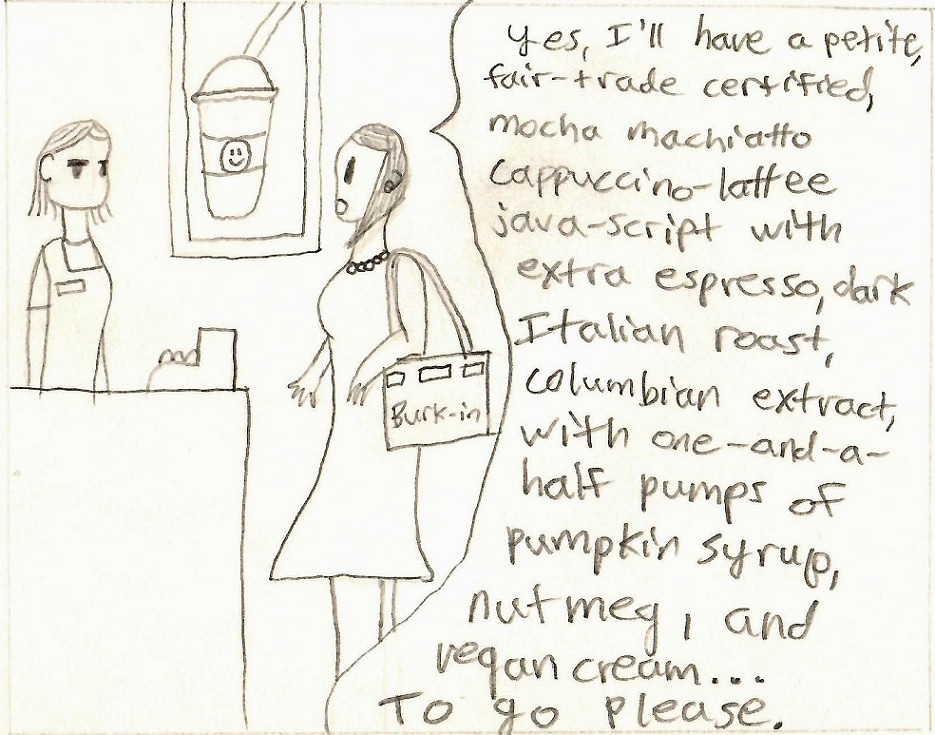 Yes, I'll have a petite,
fair-trade certified,
mocha machiatto
cappuccino-laffee
java-script with
extra espresso, dark
Italian roast,
columbian extract,
with one-and-a-
half pumps of
pumpkin syrup,
nutmeg, and
vegan cream...
To go please.
Burk-in